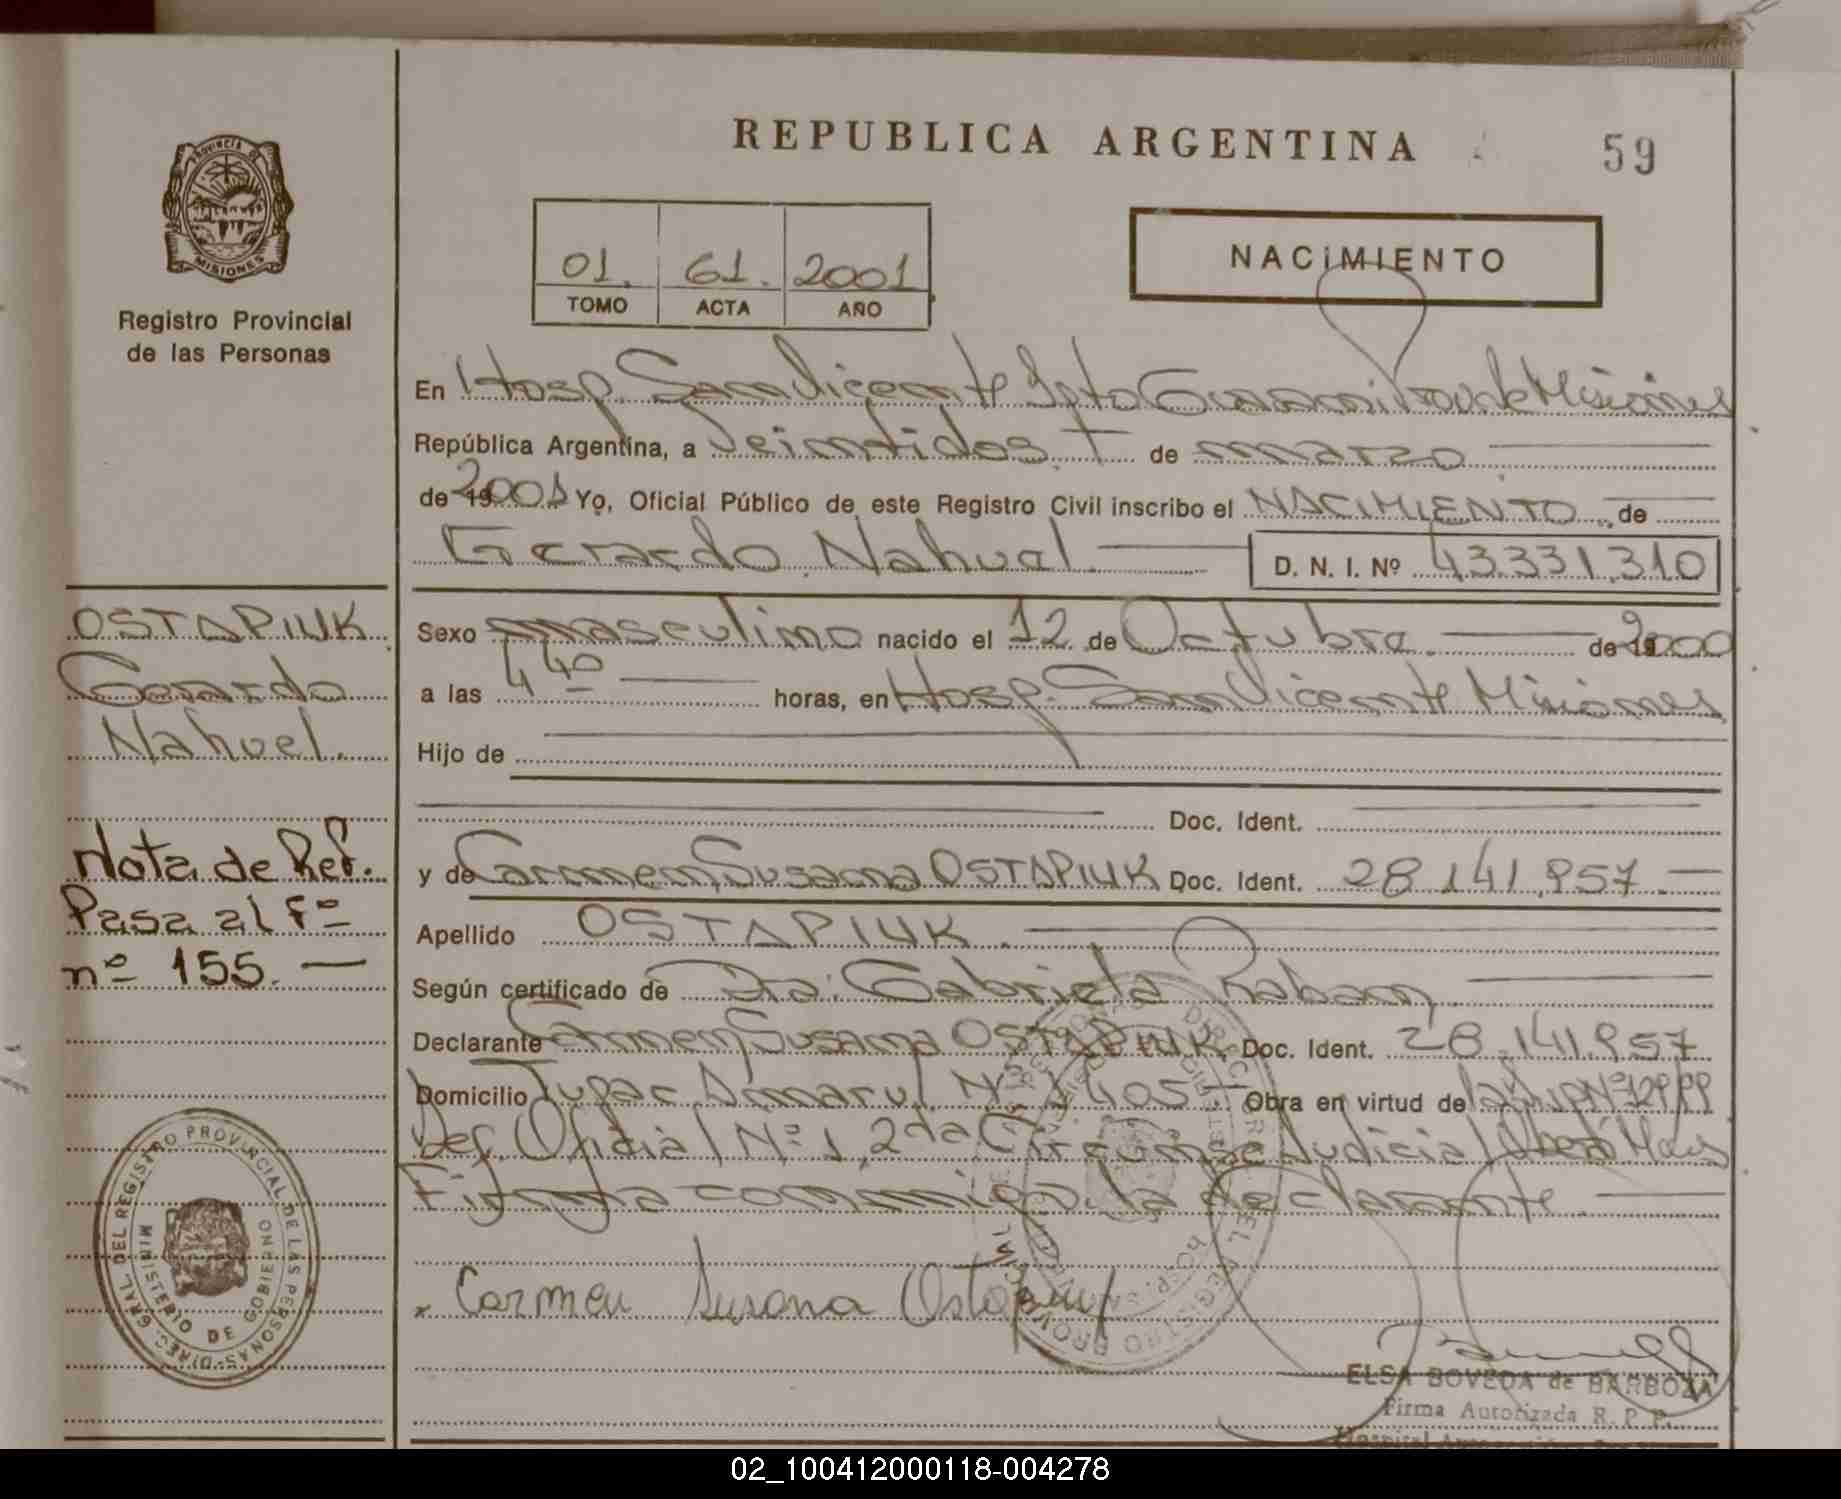 REPUBLICA ARGENTINA
59
PROVINCIA DE
MISIONES
Registro Provincial
de las Personas
01. 61. 2001
TOMO ACTA AÑO
NACIMIENTO
En Hosp. San Vicente Dpto Guaraní Prov de Misiones
República Argentina, a Veintidos de marzo
de 192001 Yo, Oficial Público de este Registro Civil inscribo el NACIMIENTO de
Gerardo Nahuel D. N. I. Nº 43.331.310
OSTAPIUK
Gerardo
Nahuel.
Sexo masculino nacido el 12 de Octubre. de 192000
a las 4 40 horas, en Hosp. San Vicente Misiones
Hijo de
Doc. Ident.
y de Carmen Susana OSTAPIUK Doc. Ident. 28.141.957
Nota de Ref.
Pasa al fº
nº 155.
Apellido OSTAPIUK.
Según certificado de Dra. Gabriela
Declarante Carmen Susana OSTAPIUK. Doc. Ident. 28.141.957
Domicilio Tupac Amaru Nº 1405 Obra en virtud de
Def. Oficial Nº 1, 2da Circunsc Judicial Oberá
Firma conmigo la declarante.
Carmen Susana Ostapiuk
DIREC. GRAL. DEL REGISTRO PROVINCIAL DE LAS PERSONAS
MINISTERIO DE GOBIERNO
ELSA BOVEDA de BARBOZA
Firma Autorizada R. P. P.
Hospital
02_100412000118-004278